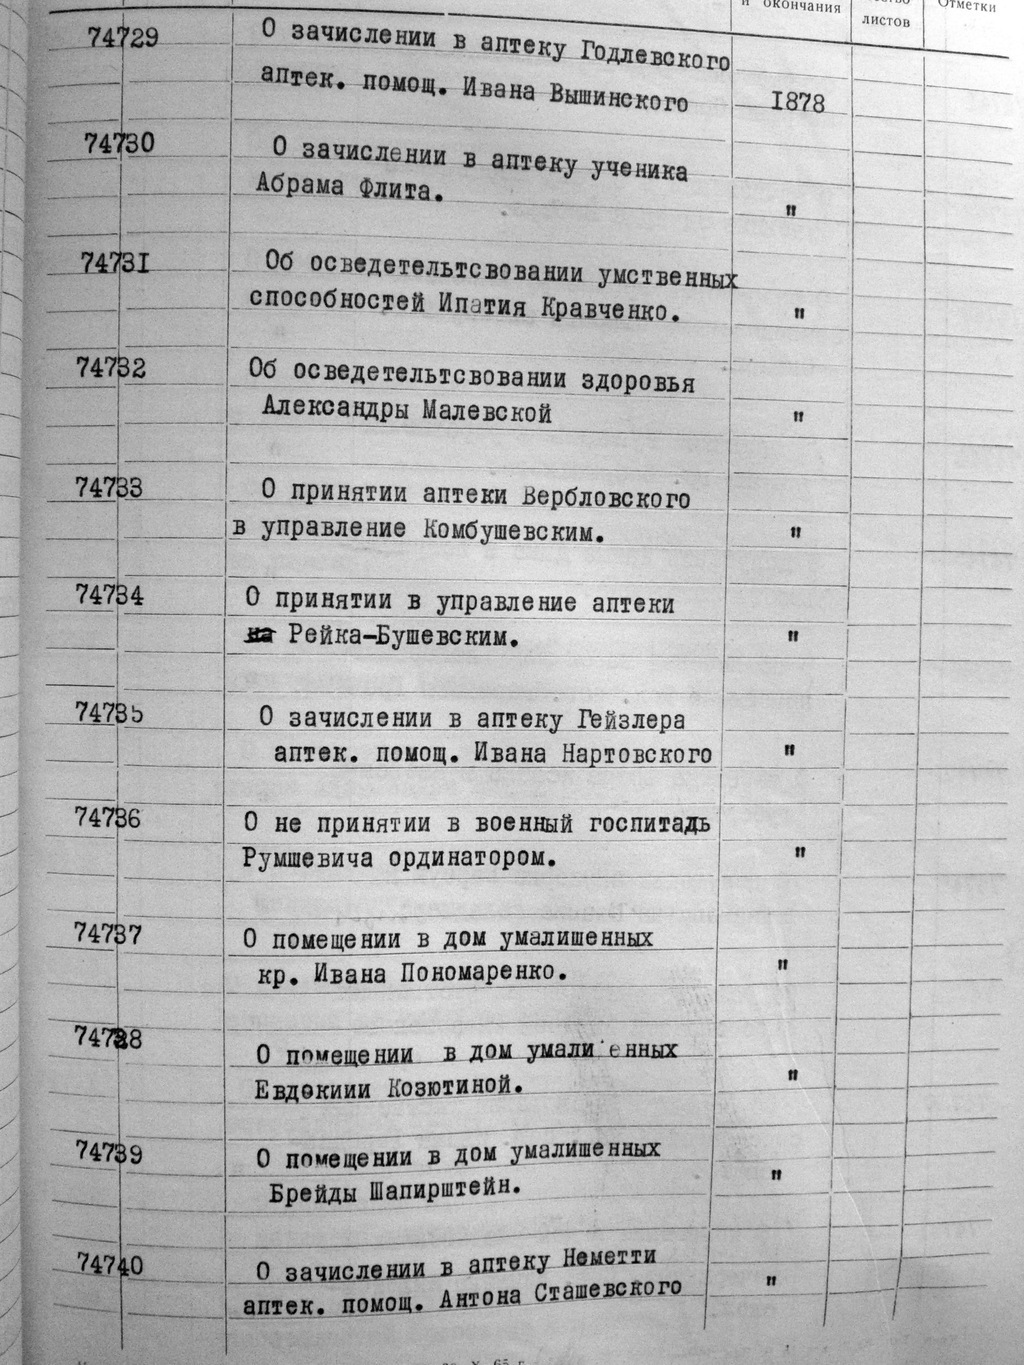 и окончания
листов
Отметки
74729 О зачислении в аптеку Годлевского
аптек. помощ. Ивана Вышинского 1878
74730 О зачислении в аптеку ученика
Абрама Флита. "
74731 Об осведетельтсвовании умственных
способностей Ипатия Кравченко. "
74732 Об осведетельтсвовании здоровья
Александры Малевской "
74733 О принятии аптеки Вербловского
в управление Комбушевским. "
74734 О принятии в управление аптеки
Рейка-Бушевским. "
74735 О зачислении в аптеку Гейзлера
аптек. помощ. Ивана Нартовского "
74736 О не принятии в военный госпитадь
Румшевича ординатором. "
74737 О помещении в дом умалишенных
кр. Ивана Пономаренко. "
74738 О помещении в дом умали енных
Евдокиии Козютиной. "
74739 О помещении в дом умалишенных
Брейды Шапирштейн. "
74740 О зачислении в аптеку Неметти
аптек. помощ. Антона Сташевского "